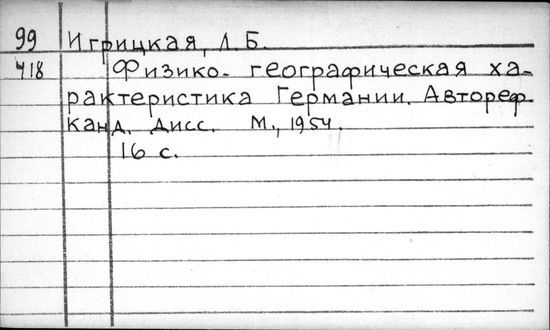 99 Игрицкая, Л. Б.
718 Физико-географическая ха-
рактеристика Германии. Автореф.
канд. дисс. М., 1954.
16 с.